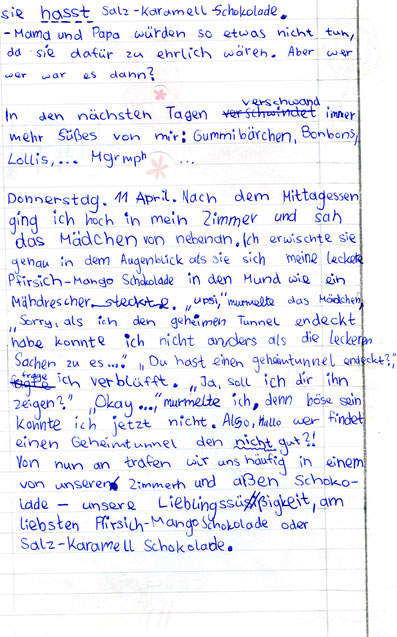 sie hasst Salz-Karamell-Schokolade.
- Mama und Papa würden so etwas nicht tun,
da sie dafür zu ehrlich wären. Aber wer
wer war es dann?
In den nächsten Tagen verschwindet verschwand immer
mehr Süßes von mir: Gummibärchen, Bonbons,
Lollis, ... Mgrmph ...
Donnerstag. 11 April. Nach dem Mittagessen
ging ich hoch in mein Zimmer und sah
das Mädchen von nebenan. Ich erwischte sie
genau in dem Augenblick als sie sich meine leckere
Pfirsich-Mango Schokolade in den Mund wie ein
Mähdrescher steckte. „upsi," murmelte das Mädchen,
„Sorry, als ich den geheimen Tunnel endeckt
habe konnte ich nicht anders als die leckeren
Sachen zu es...." „Du hast einen geheimtunnel endeckt?",
frage ich verblüfft. „Ja, soll ich dir ihn
zeigen?" „Okay...," murmelte ich, denn böse sein
konnte ich jetzt nicht. Also, Hallo wer findet
einen Geheimtunnel den nicht gut?!
Von nun an trafen wir uns häufig in einem
von unseren Zimmern und aßen Schoko-
lade - unsere Lieblingssüßigkeit, am
liebsten Pfirsich-Mango Schokolade oder
Salz-Karamell Schokolade.